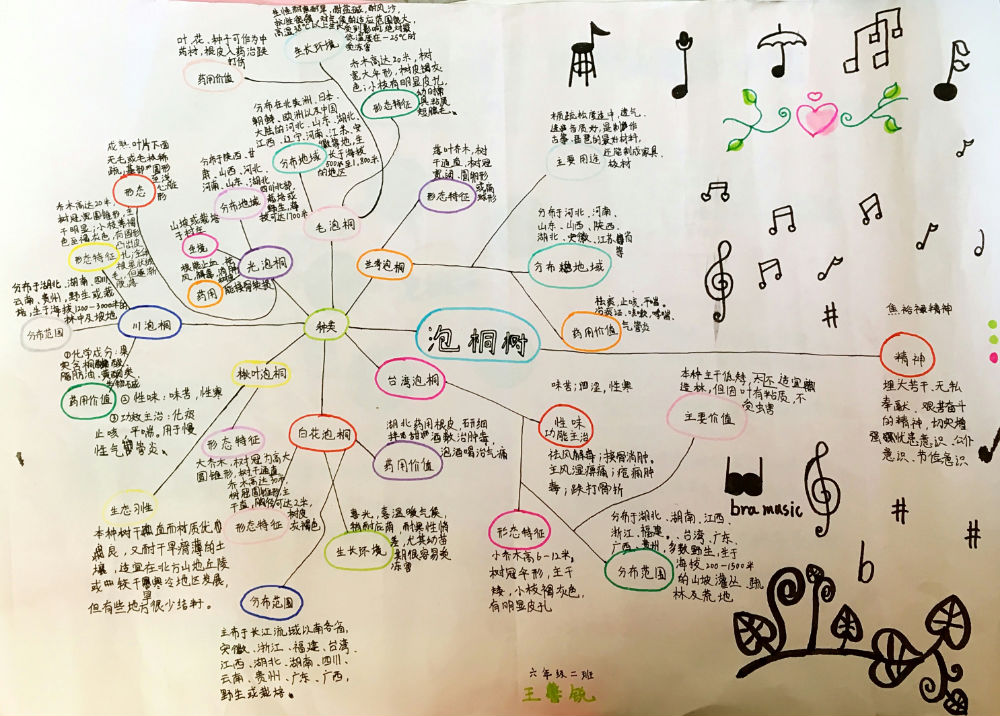 泡桐树
种类
毛泡桐
药用价值
叶、花、种子可作为中
药材，根皮入药治跌
打伤
生长环境
高温38℃以上生长
受到影响，绝对最
低温度在-25℃时
受冻害
形态特征
乔木高达20米，树
冠大伞形，树皮褐灰
色；小枝有明显皮孔，
幼时常
具粘质
短腺毛。
分布地域
分布在北美洲、日本、
朝鲜、欧洲以及中国
大陆的河北、山东、湖北、
江西、辽宁、河南、江苏、安
徽等地，生
长于海拔
500米至1,800米
的地区
光泡桐
分布地域
分布于陕西、甘
肃、山西、河北、
河南、山东、湖北、
四川北部，
栽培或
野生，海
拔可达1700米
生境
山坡或栽培
于村庄
药用
兰考泡桐
形态特征
落叶乔木，树
干通直，树冠
宽阔，圆卵形
或扁
球形
主要用途
根据松度适中，透气、
透声音质好，是制作
古筝、琵琶的最好材料，
还能制成家具、
板材
分布地域
分布于河北、河南、
山东、山西、陕西、
湖北、安徽、江苏省
等
药用价值
祛痰，止咳，平喘。
治痰活，咳嗽，哮喘，
气管炎
川泡桐
形态
成熟叶片下面
无毛或毛被稀
疏，基部圆形
至浅
心脏
形
形态特征
乔木高达20米，
树冠宽圆锥形，主
干明显；小枝紫褐
色至褐灰色，有圆形
凸出皮
孔，全体
被星状绒
毛，但逐渐
脱落
分布范围
分布于湖北、湖南、四川
云南、贵州，野生或栽
培，生于海拔1200-3000米的
林中及坡地
药用价值
①化学成分：果
②性味：味苦，性寒
③功效主治：化痰
止咳，平喘。用于慢
性气管炎。
楸叶泡桐
形态特征
大乔木，树冠为高大
圆锥形，树干通直
生态习性
本种树干通直而材质优
良，又耐干旱瘠薄的土
壤，适宜在北方山地丘陵
或较干旱寒冷地区发展，
但有些地方很少结籽。
白花泡桐
药用价值
湖北药用根皮，研细
拌甜酒敷治肿毒，
泡酒喝治气痛
形态特征
乔木高达30米，
树冠圆锥形，主
干直，胸径可达2米，
树皮
灰褐色
生长环境
喜光，喜温暖气候，
稍耐庇荫，耐寒性稍
差，尤其幼苗
期很容易受
冻害
分布范围
主布于长江流域以南各省，
安徽、浙江、福建、台湾、
江西、湖北、湖南、四川、
云南、贵州、广东、广西，
野生或栽培。
台湾泡桐
性味
功能主治
味苦；四涩，性寒
祛风解毒；接骨消肿。
主风湿痹痛；疮痈肿
毒；跌打骨折
主要价值
本种主干低矮，不适宜
造林，但因叶有粘质，不
受虫害
形态特征
小乔木高6-12米。
树冠伞形，主干
矮，小枝褐灰色，
有明显皮孔
分布范围
分布于湖北、湖南、江西、
浙江、福建、
台湾、广东、
广西、贵州，多数野生，生于
海拔200-1500米
的山坡灌丛、疏
林及荒地
精神
焦裕禄精神
埋头苦干、无私
奉献、艰苦奋斗
的精神，切实增
强忧患意识、公仆
意识、节俭意识
bra music
六年级二班
王誉锐